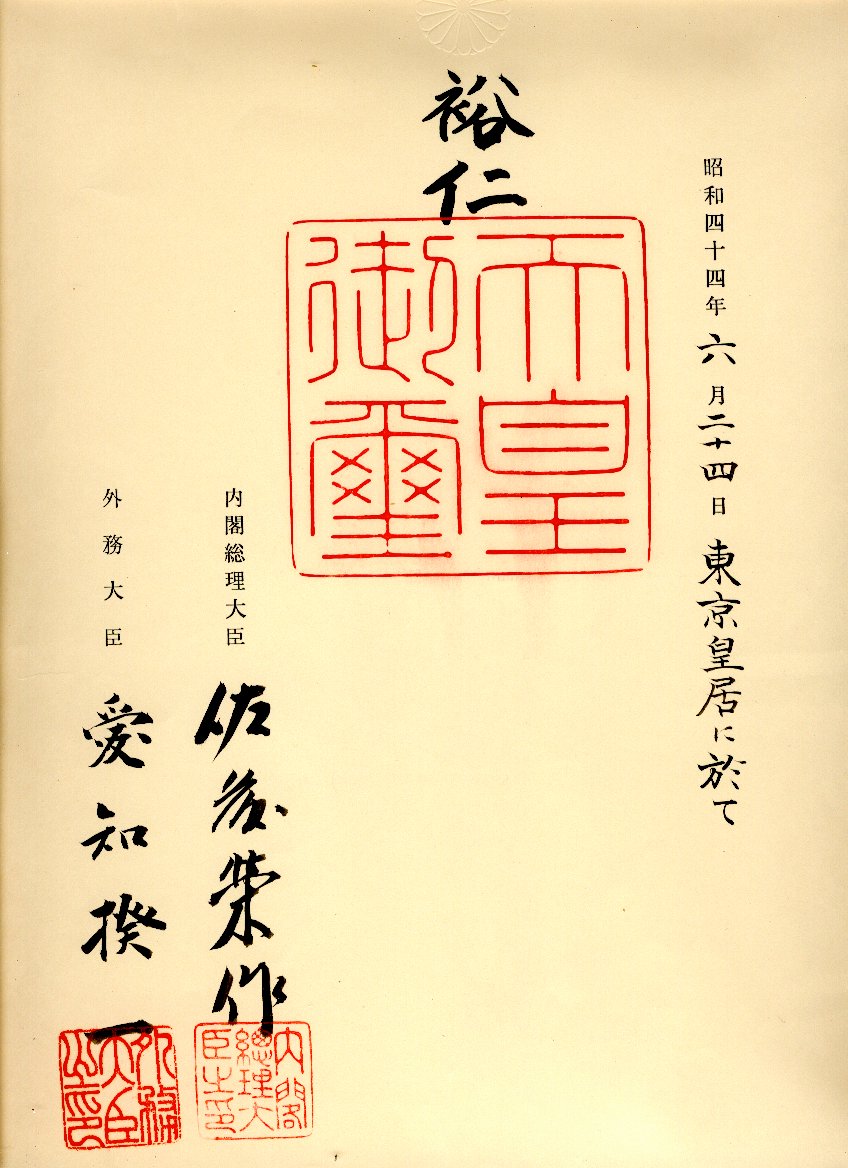 昭和四十四年六月二十四日東京皇居に於て
裕仁
天皇
御璽
内閣総理大臣 佐藤榮作
内閣
總理大
臣之印
外務大臣 愛知揆一
外務
大臣
之印